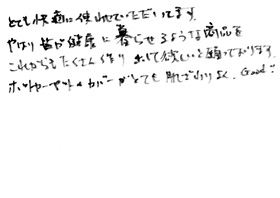 とても快適に使わせていただいてます。
やはり皆が健康に暮らせるような商品を
これからもたくさん作り出して欲しいと願っております。
ホットカーペットのカバーがとても肌ざわりよく、Good!!